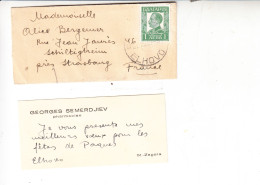 Mademoiselle
Alice Bergemer
Rue Jean Jaurès
Schiltigheim
près Strasbourg
France
ELHOVO
GEORGES SEMERDJIEV
Je vous présente mes
meilleurs vœux pour les
fêtes de Pâques
Elhovo